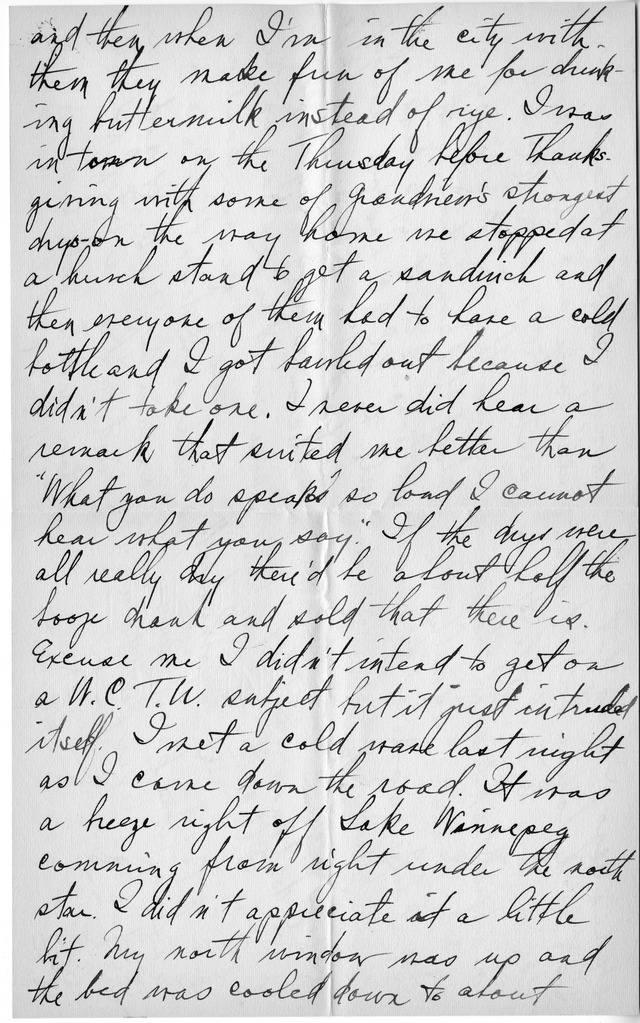 and then when I'm in the city with
them they make fun of me for drink-
ing buttermilk instead of rye. I was
in town on the Thursday before Thanks-
giving with some of Grandview's strongest
drys-on the way home we stopped at
a lunch stand to get a sandwich and
then everyone of them had to have a cold
bottle and I got bawled out because I
didn't take one. I never did hear a
remark that suited me better than
"What you do speaks so loud I cannot
hear what you say." If the drys were
all really dry there'd be about half the
booze drank and sold that there is.
Excuse me I didn't intend to get on
a W.C.T.U. subject but it just intruded
itself. I met a cold wave last night
as I came down the road. It was
a breeze right off Lake Winnepeg
comming from right under the north
star. I didn't appreciate it a little
bit. My north window was up and
the bed was cooled down to about